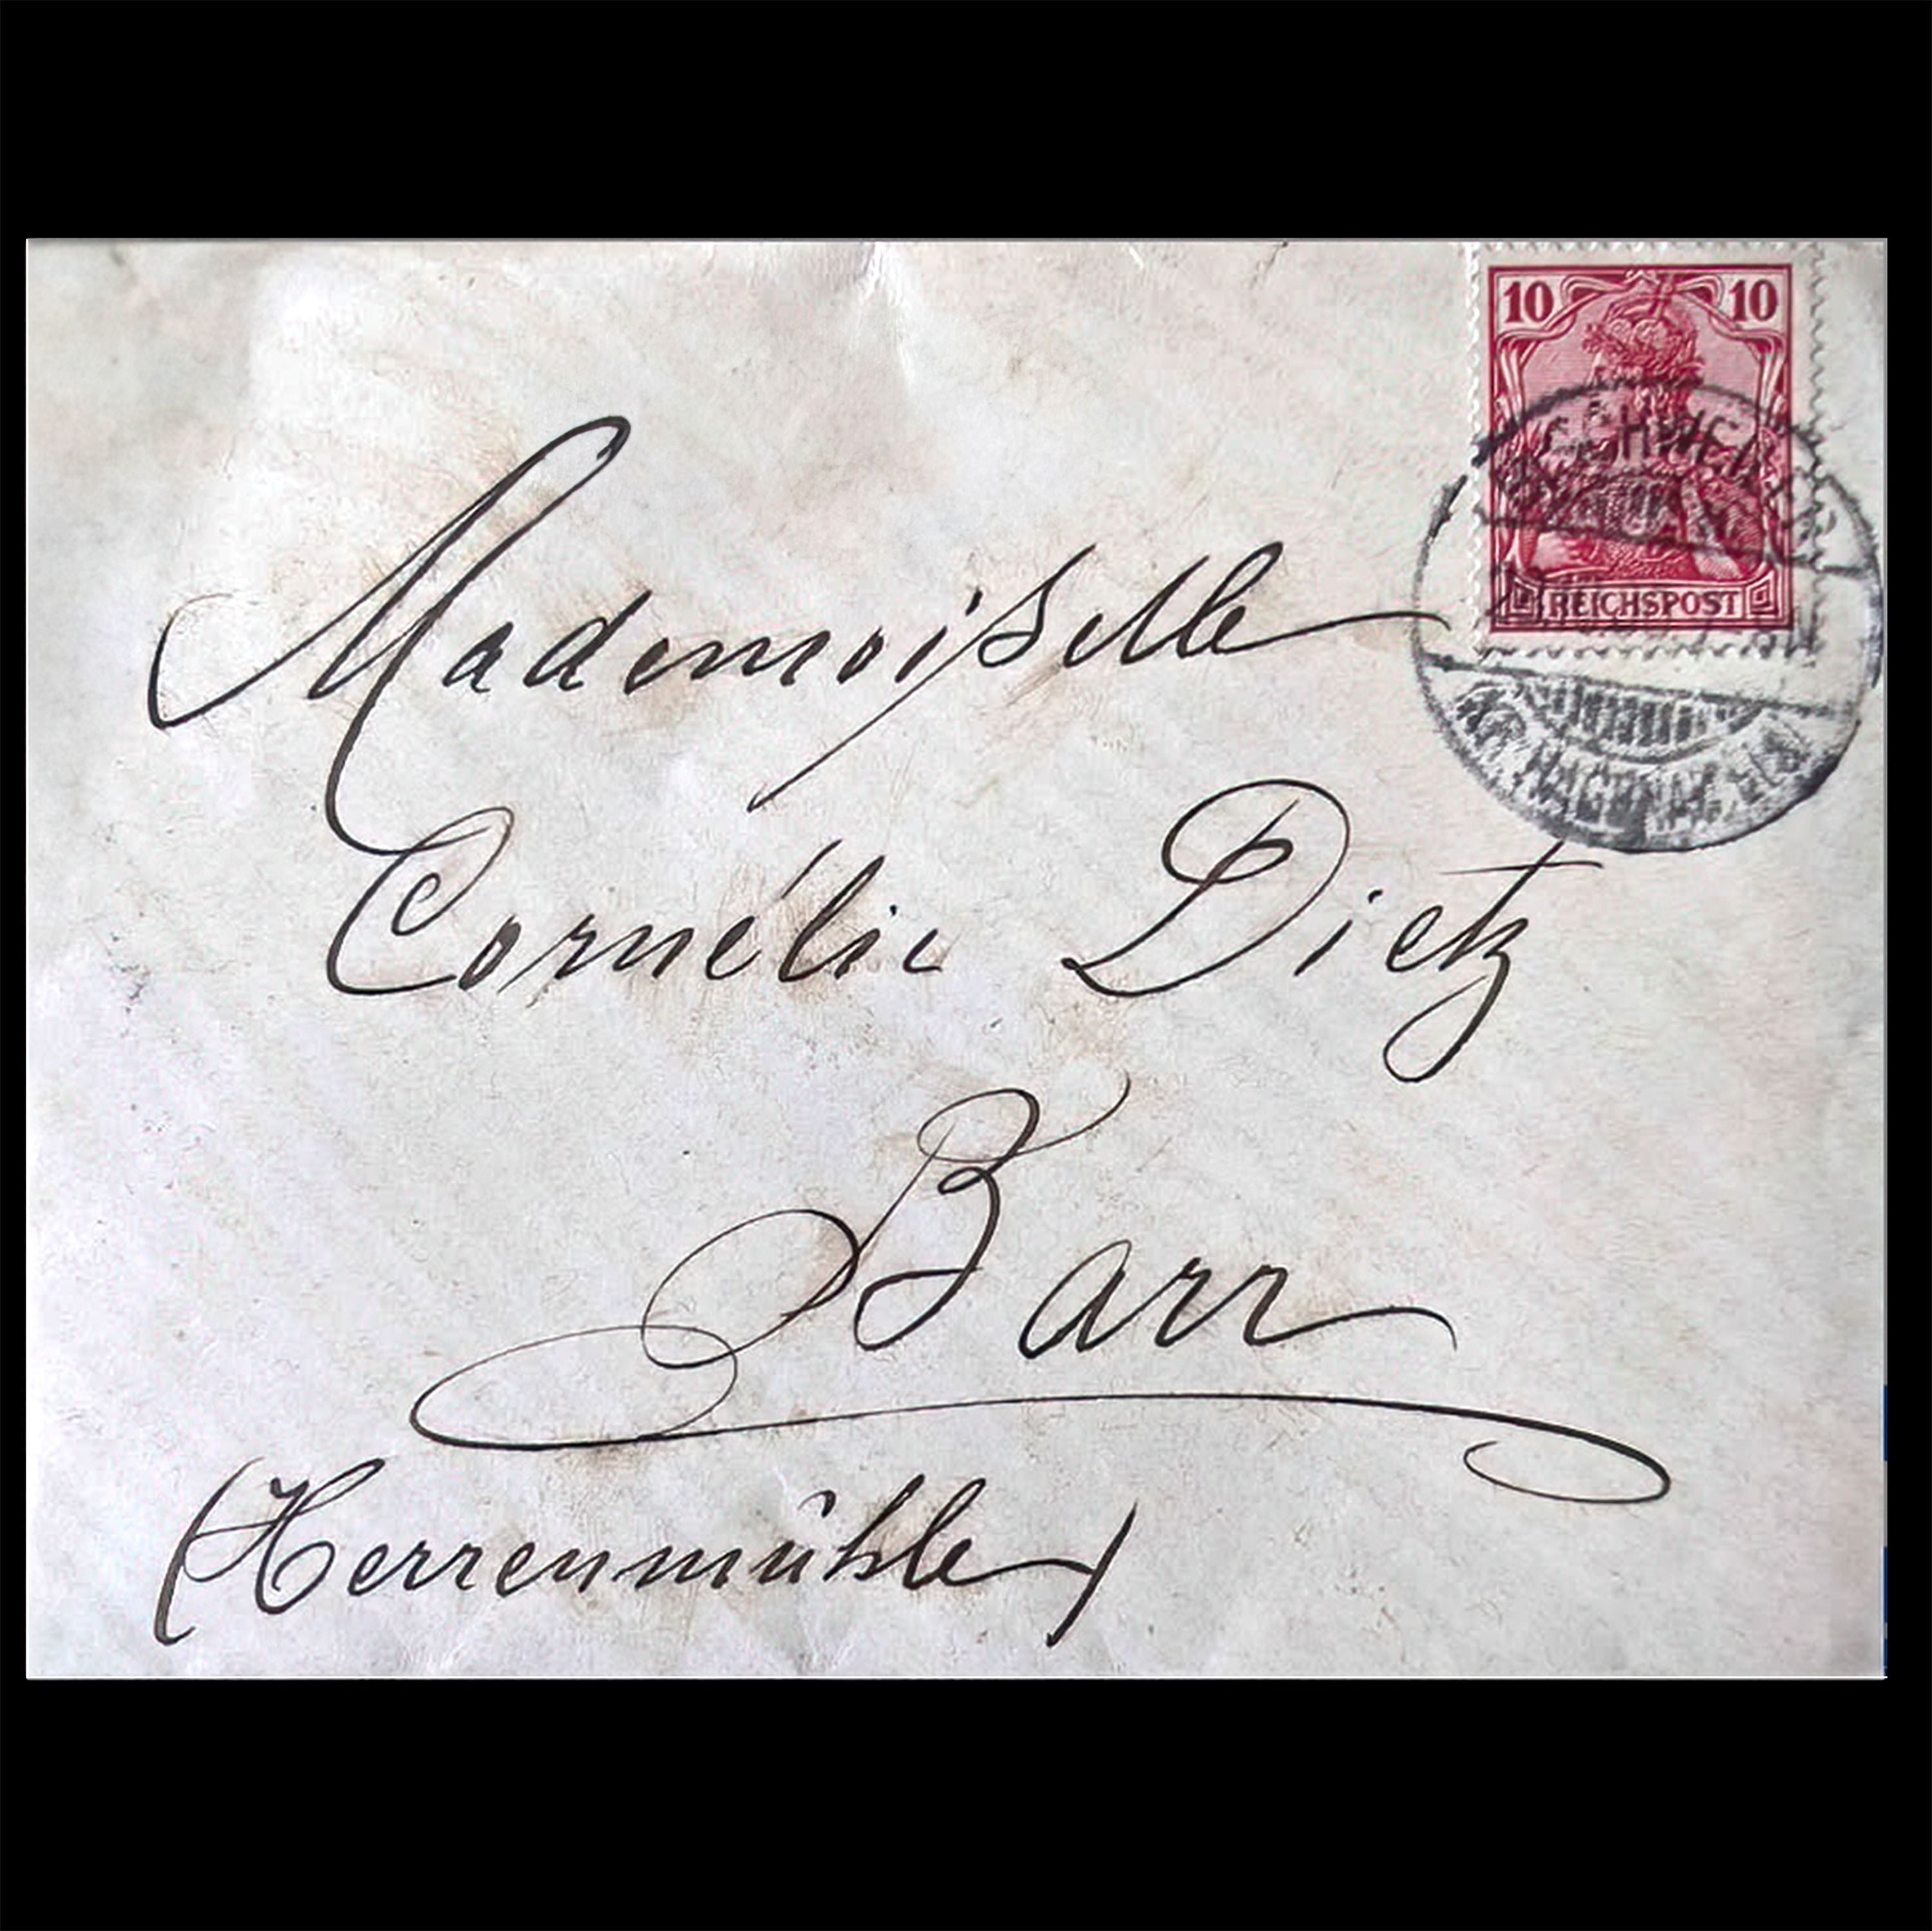 10 10
REICHSPOST
Mademoiſselle
Cornélie Dietz
Barr
(Herrenmühle)